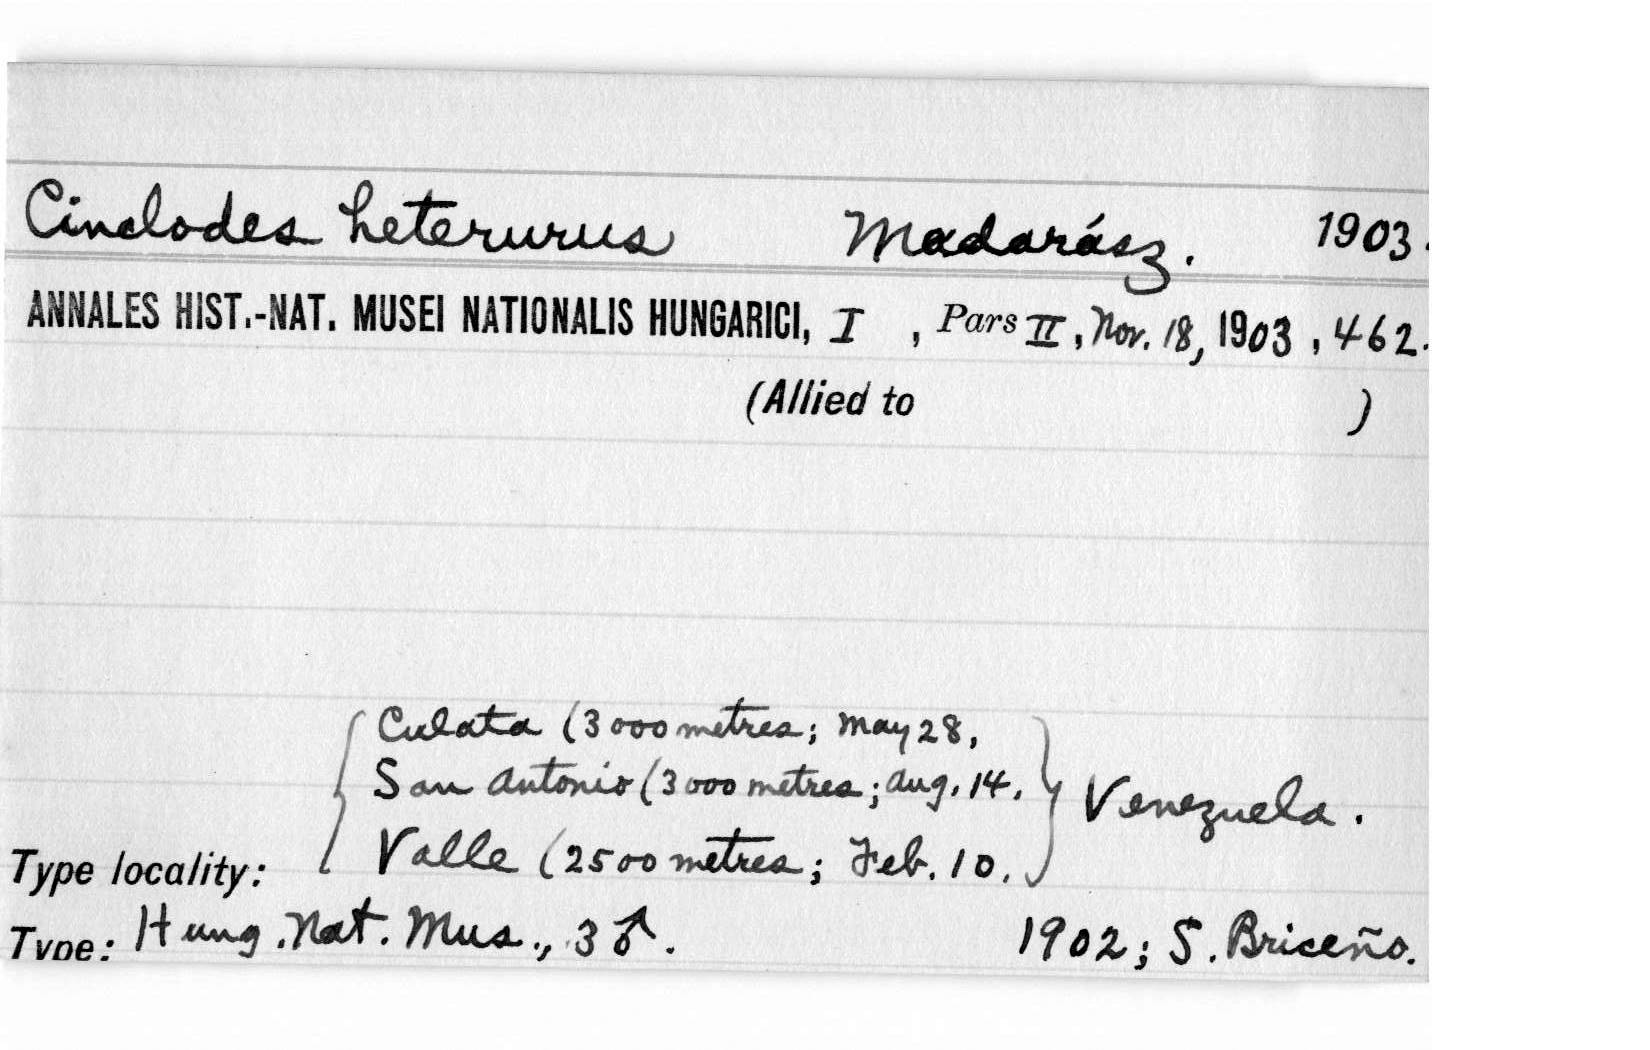 Cinclodes heterurus Madarász. 1903.
ANNALES HIST.-NAT. MUSEI NATIONALIS HUNGARICI, I , Pars II, Nov. 18, 1903 , 462.
(Allied to )
Culata (3000 metres; May 28,
San Antonio (3000 metres; Aug. 14, Venezuela.
Type locality: Valle (2500 metres; Feb. 10,
Type: Hung. Nat. Mus., 3 ♂. 1902; S. Briceño.